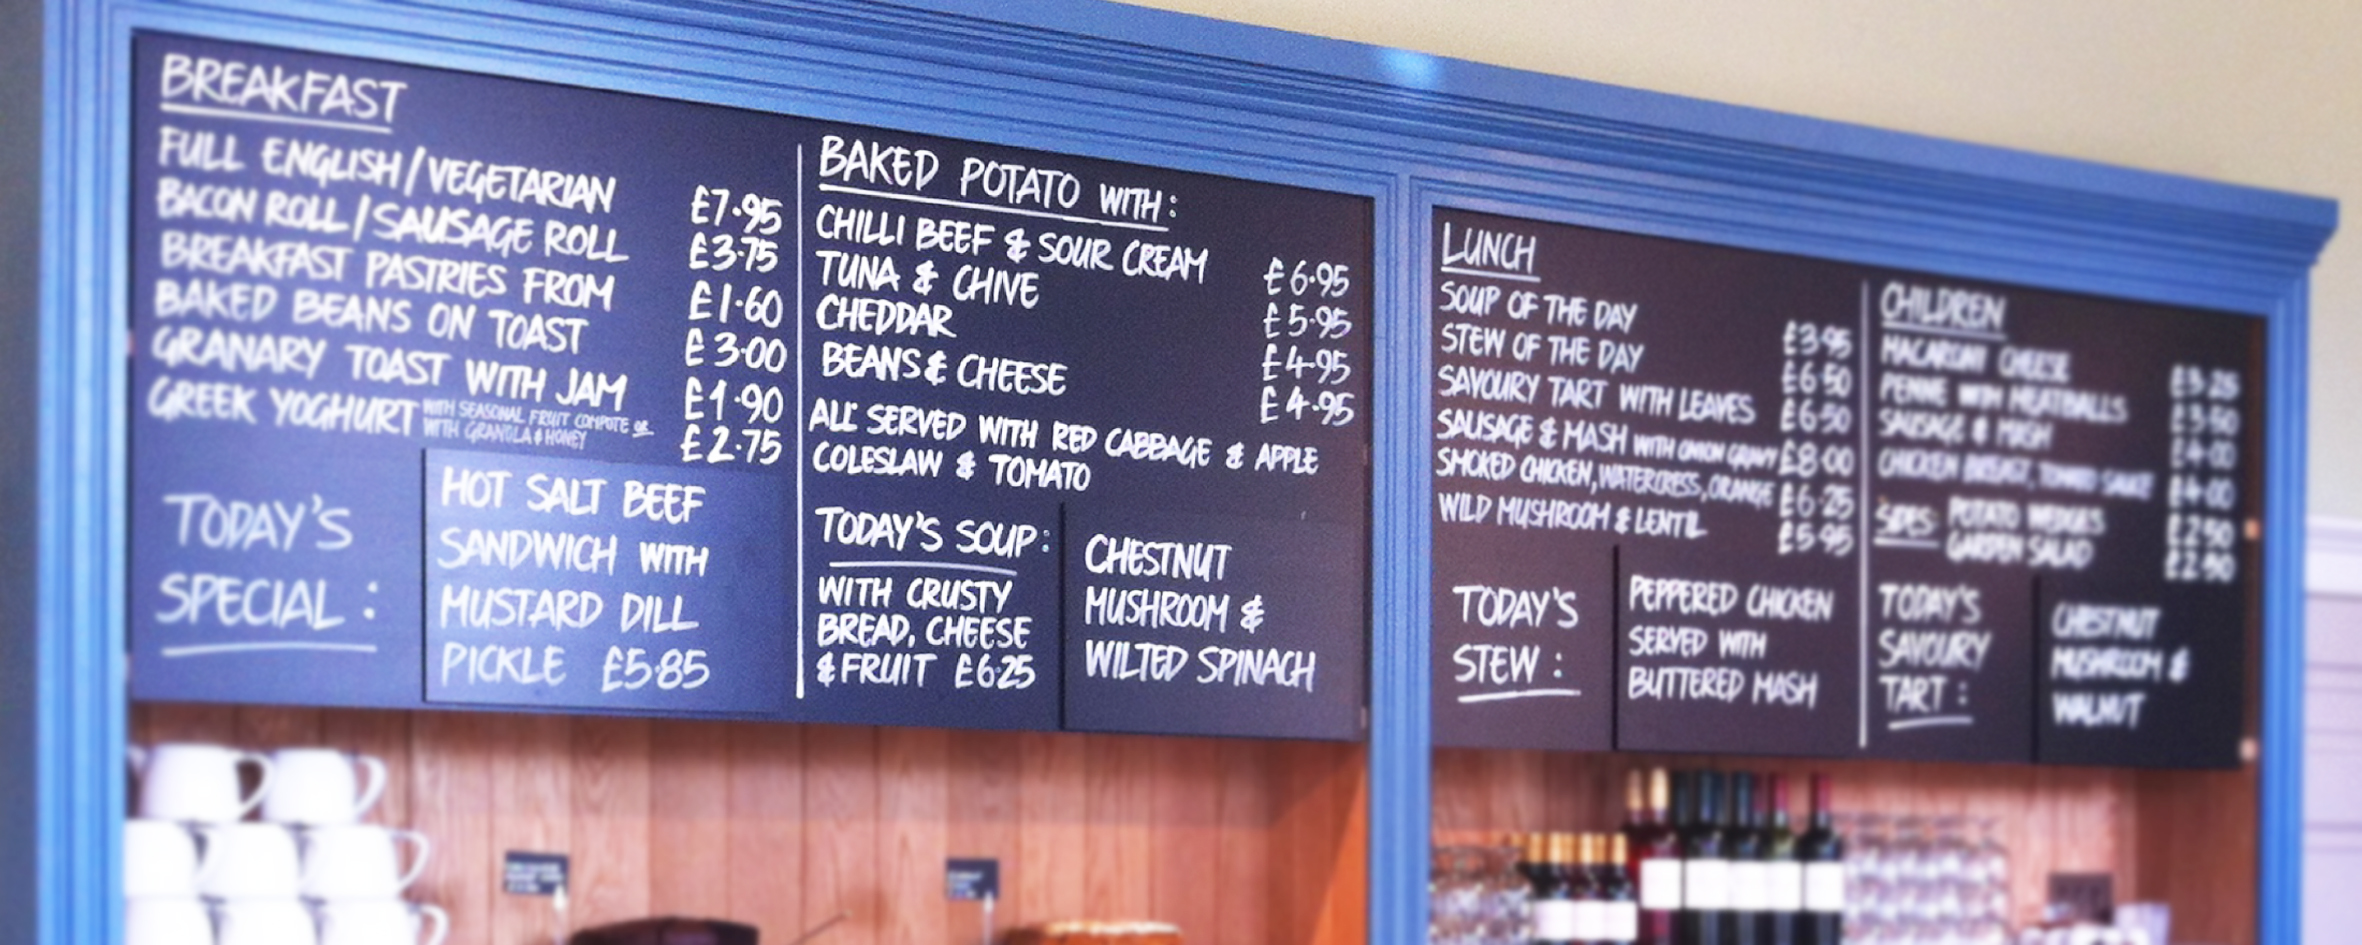 BREAKFAST
FULL ENGLISH/VEGETARIAN £7.95
BACON ROLL/SAUSAGE ROLL £3.75
BREAKFAST PASTRIES FROM £1.60
BAKED BEANS ON TOAST £3.00
GRANARY TOAST WITH JAM £1.90
GREEK YOGHURT WITH SEASONAL FRUIT COMPOTE OR
WITH GRANOLA & HONEY £2.75
TODAY'S
SPECIAL:
HOT SALT BEEF
SANDWICH WITH
MUSTARD DILL
PICKLE £5.85
BAKED POTATO WITH:
CHILLI BEEF & SOUR CREAM £6.95
TUNA & CHIVE £5.95
CHEDDAR £4.95
BEANS & CHEESE £4.95
ALL SERVED WITH RED CABBAGE & APPLE
COLESLAW & TOMATO
TODAY'S SOUP:
WITH CRUSTY
BREAD, CHEESE
& FRUIT £6.25
CHESTNUT
MUSHROOM &
WILTED SPINACH
LUNCH
SOUP OF THE DAY £3.95
STEW OF THE DAY £6.50
SAVOURY TART WITH LEAVES £6.50
SAUSAGE & MASH WITH ONION GRAVY £8.00
SMOKED CHICKEN, WATERCRESS, ORANGE £6.25
WILD MUSHROOM & LENTIL £5.95
TODAY'S
STEW:
PEPPERED CHICKEN
SERVED WITH
BUTTERED MASH
CHILDREN
MACARONI CHEESE £3.25
PENNE WITH MEATBALLS £3.50
SAUSAGE & MASH £4.00
CHICKEN BREAST, TOMATO SAUCE £4.00
SIDES: POTATO WEDGES £2.50
GARDEN SALAD £2.50
TODAY'S
SAVOURY
TART:
CHESTNUT
MUSHROOM &
WALNUT